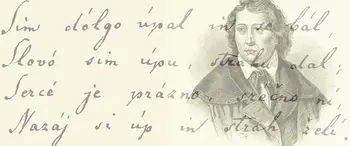 Sim dólgo úpal in se bál,
Slovó sim úpu, strahu dal;
Sercé je prázno, srečno ní,
Nazáj si úp in strah želí.